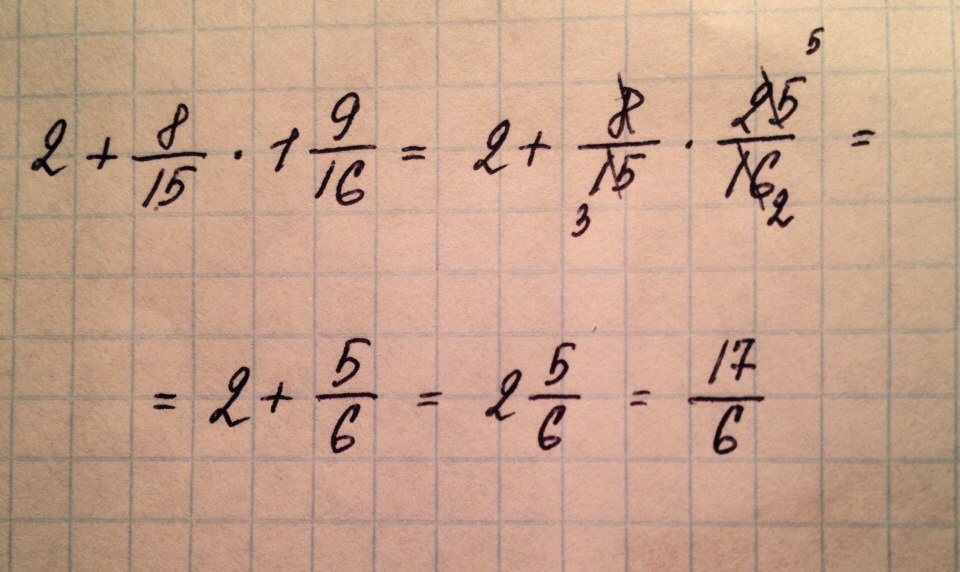 2 + 8/15 · 1 9/16 = 2 + 8/15 3 · 25/16 5 2 =
= 2 + 5/6 = 2 5/6 = 17/6